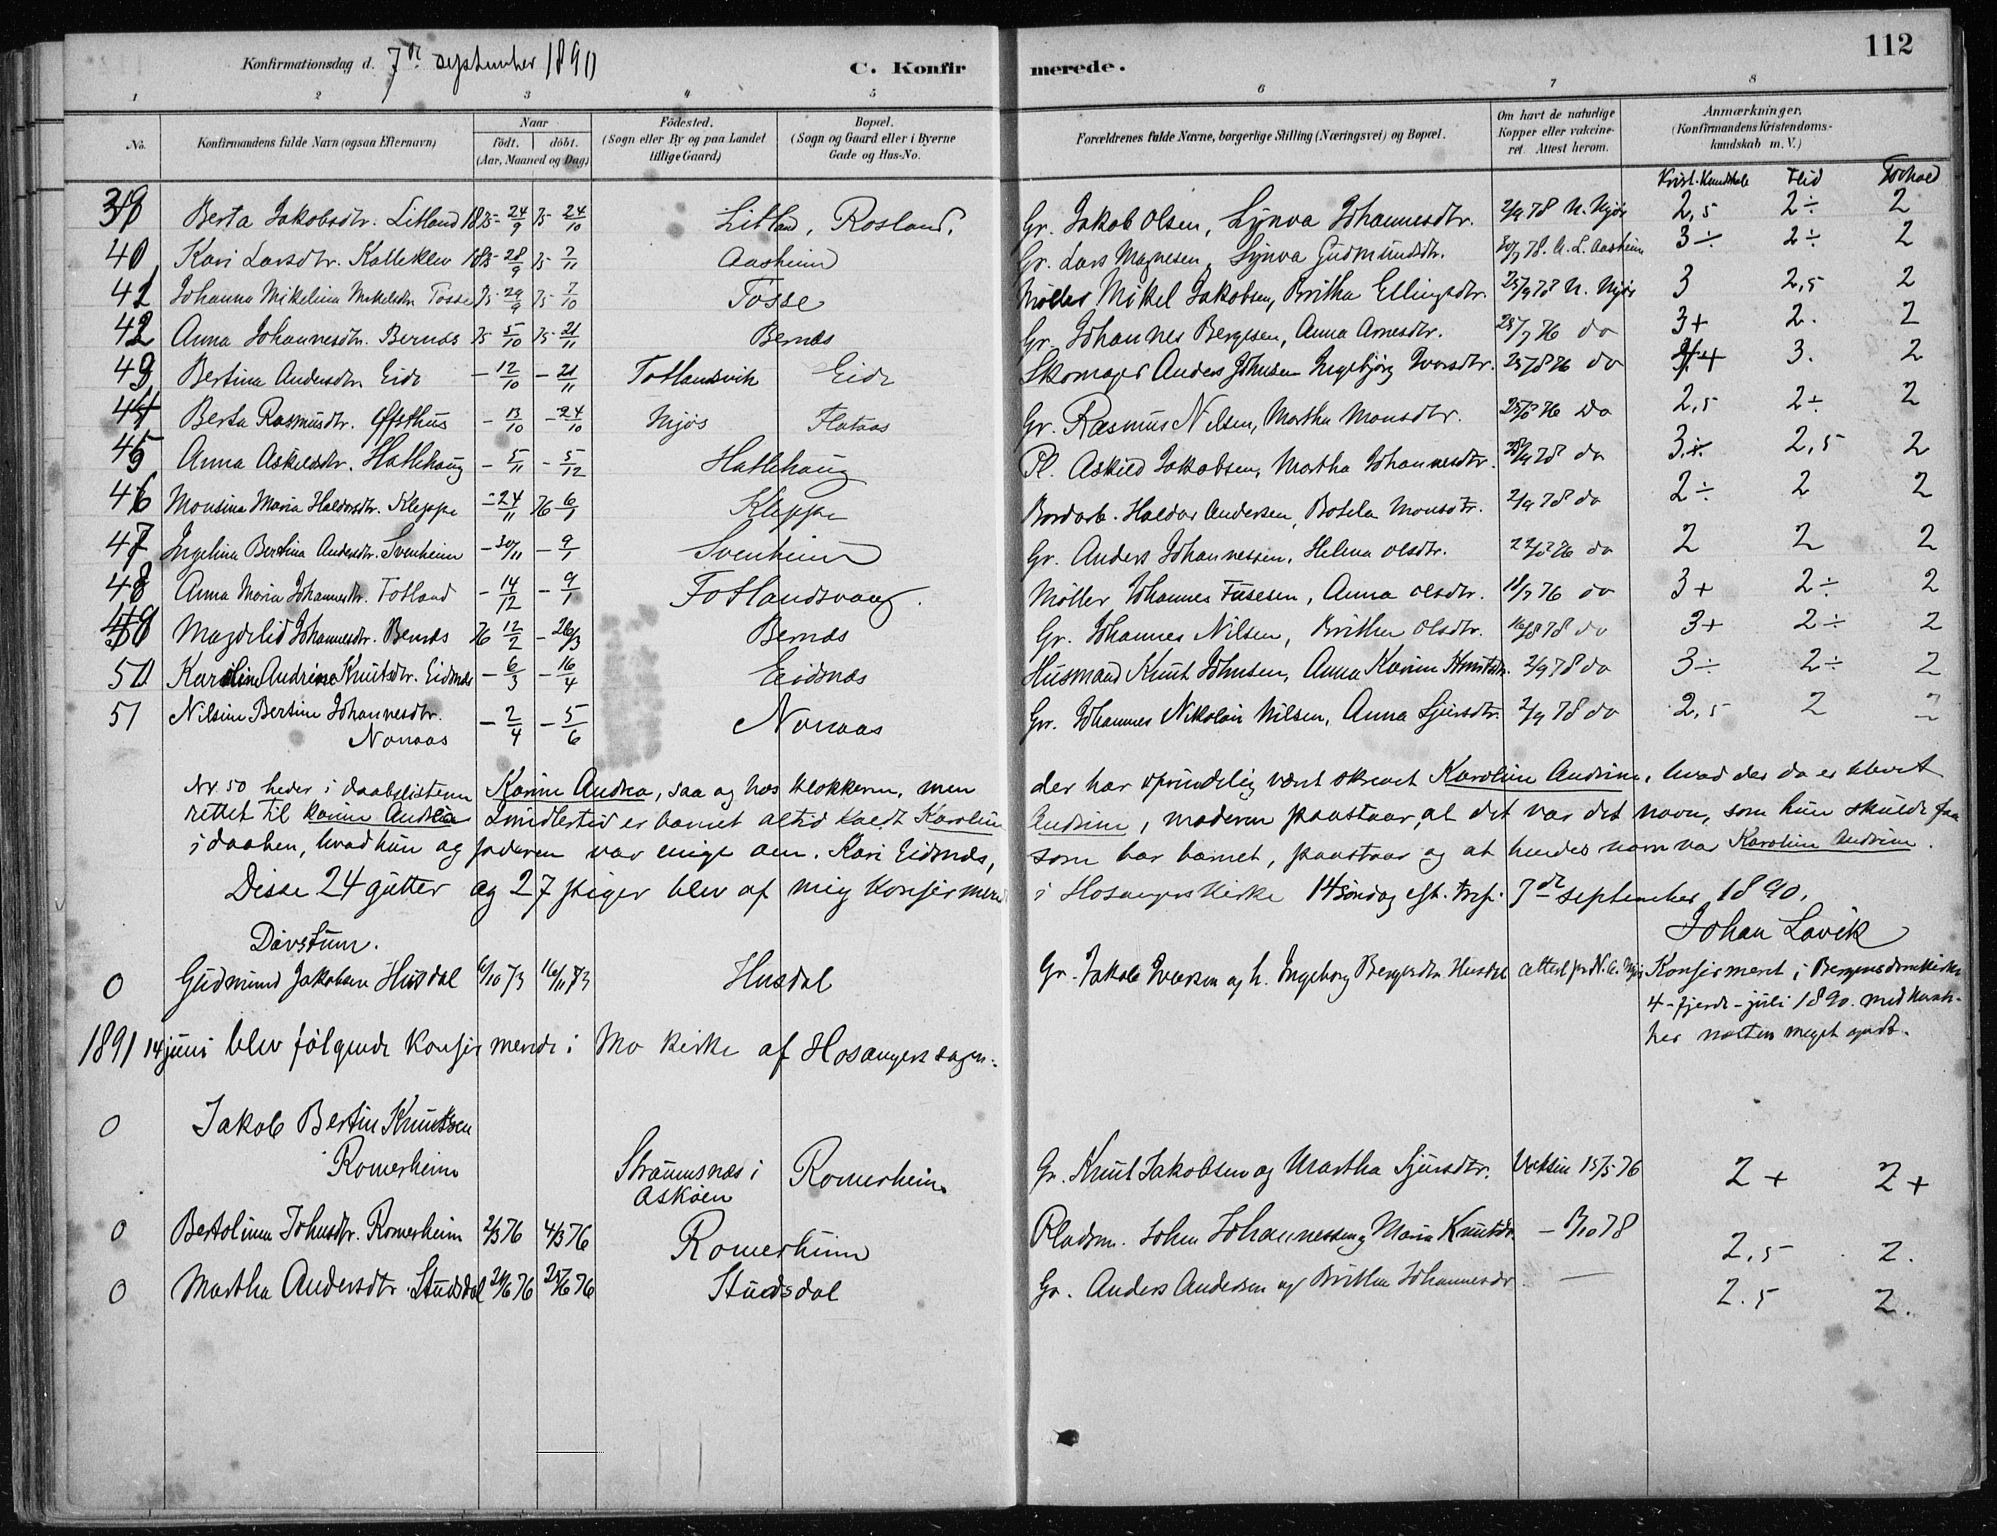 112
Konfirmationsdag d. 7de september 1890 C. Konfirmerede.
1 2 3 4 5 6 7 8
No. Konfirmandens fulde Navn (ogsaa Efternavn) Naar født. døbt. (Aar, Maaned og Dag) Fødested. (Sogn eller By og paa Landet tillige Gaard) Bopæl. (Sogn og Gaard eller i Byerne Gade og Hus-No. Forældrenes fulde Navne, borgerlige Stilling (Næringsvei) og Bopæl. Om havt de naturlige Kopper eller vakcineret. Attest herom. Anmærkninger, (Konfirmandens Kristendomskundskab m. V.)
Krist. Kundskab Flid Forhold
39 Berta Jakobsdtr. Litland 1875 24/9 75 24/10 Litland, Rosland. Gr. Jakob Olsen, Synva Johannesdtr. 2/9 78 N. Njøs 2,5 2÷ 2
40 Kari Larsdtr. Kalleklev 1875 28/9 75 7/11 Aasheim Gr. Lars Magnesen, Synva Gudmundsdtr. 30/7 78. A. L. Aasheim 3÷ 2÷ 2
41 Johanna Mikelina Mikelsdtr Tosse 75 29/9 75 7/10 Tosse Møller Mikel Jakobsen, Britha Ellingsdtr. 25/9 78 N. Njøs 3 2,5 2
42 Anna Johannesdtr. Bernæs 75 5/10 75 21/11 Bernæs Gr. Johannes Bergesen, Anna Arnesdtr. 25/7 76 do 3+ 2. 2
43 Bertina Andersdtr. Eide - 12/10 - 21/11 Totlandsvik Eide Skomager Anders Johnsen Ingebjørg Iversdtr. 25/8 76 do 4+ 3. 2
44 Berta Rasmusdtr. Øfsthus - 13/10 - 24/10 Njøs Flataas Gr. Rasmus Nilsen, Martha Monsdtr. 25/8 76 do 2,5 2÷ 2
45 Anna Askildsdtr. Hatlehaug - 5/11 - 5/12 Hatlehaug Pl. Askild Jakobsen, Martha Johannesdtr. 28/9 78 do 3÷ 2,5 2
46 Monsina Maria Haldorsdtr. Kleppe - 24/11 76 6/1 Kleppe Bordarb. Haldor Andersen, Botela Monsdtr. 2/9 78 do 2÷ 2 2
47 Ingelina Bertina Andersdtr. Svenheim - 30/11 - 9/1 Svenheim Gr. Anders Johannessen, Helena Olsdtr. 22/8 76 do 2 2 2
48 Anna Maria Johannesdtr. Totland - 14/12 - 9/1 Totlandsvaag. Møller Johannes Tufesen, Anna Olsdtr. 11/7 76 do 3+ 2÷ 2
49 Magdelid Johannesdtr. Bernæs 76 12/2 - 26/3 Bernæs Gr. Johannes Nilsen, Brithe Olsdtr. 16/8 78 do 3+ 2÷ 2
50 Karoline Andrine Knutsdtr. Eidsnæs - 6/3 - 16/4 Eidsnæs Husmand Knut Johnsen, Anna Karine 2/9 78 do 3÷ 2÷ 2
51 Nilsine Bertine Johannesdtr. - 2/4 - 5/6 Nonaas Gr. Johannes Nikolai Nilsen, Anna Sjursdtr. 2/9 78 do 2,5 2 2
Nonaas
Nr 50 heder i daabslisten Karine Andrea, saa og hos klokkeren, men der har oprindelig vært skrevet Karoline Andrine, hvad der da er blevet
rettet til karine Andrea Imidlertid er barnet altid kaldt Karoline Andrine, moderen paastaar, at det var det navn, som hun skulde faa
i daaben, hvad hun og faderen var enige om. Kari Eidsnæs, som bar barnet, paastaar og at hendes navn var Karoline Andrine.
Disse 24 gutter og 27 piger blev af mig konfirmeret i Hosanger kirke 14 søndag eft. tref. 7de september 1890.
Johan Lavik
Davstum.
0 Gudmund Jakobsen Husdal 6/10 73 16/11 73 Husdal Gr. Jakob Iversen og h. Ingeborg Bergesdtr. Husdal attest fr N. A. Njøs Konfirmeret i Bergens domkirke
4 - fjerde - juli 1890. med
her næsten meget godt.
1891 14 juni blev følgende konfirmerede i Mo kirke af Hosangers sogn:
0 Jakob Bertin Knutsen
Romerheim Straumsnæs i Askøen Romerheim Gr. Knut Jakobsen og Martha Sjursdtr. Vaksin 15/5 76 2+ 2+
0 Bertolina Johnsdtr. Romerheim 2/3 76 4/3 76 Romerheim Pladsm. John Johannessen og Maria Knutsdr - 13/10 78 2,5 2.
0 Martha Andersdtr. Studsdal 20/6 76 25/6 76 Studsdal Gr. Anders Andersen og Britha Johannesdr — 2.5 2.